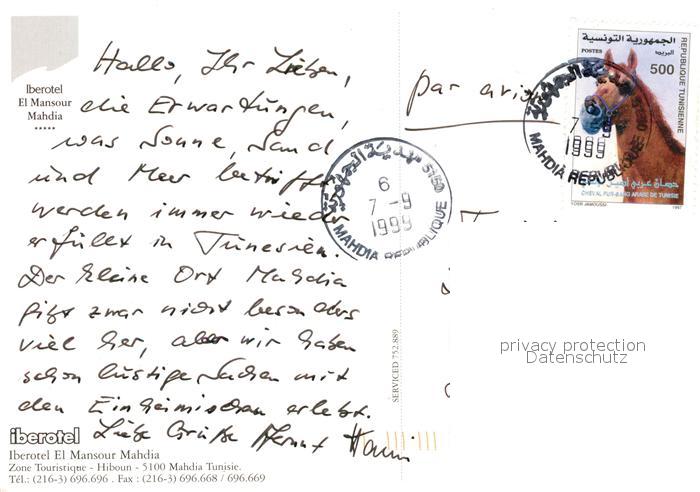 Iberotel
El Mansour
Mahdia
*****
Hallo, Ihr Lieben,
die Erwartungen,
was Sonne, Sand
und Meer betrifft
werden immer wieder
erfüllt in Tunesien.
Der kleine Ort Mahdia
gibt zwar nicht besonders
viel her, aber wir haben
schon lustige Sachen mit
den Einheimischen erlebt.
Liebe Grüße
iberotel
Iberotel El Mansour Mahdia
Zone Touristique - Hiboun - 5100 Mahdia Tunisie.
Tél.: (216-3) 696.696 . Fax : (216-3) 696.668 / 696.669
SERVICED 752.889
par avion
الجمهورية التونسية
البريد
POSTES
500
REPUBLIQUE TUNISIENNE
حصان عربي أصيل
CHEVAL PUR-SANG ARABE DE TUNISIE
1997
MAHDIA REPUBLIQUE
1999
5150
6
7 -9
1999
MAHDIA REPUBLIQUE
privacy protection
Datenschutz